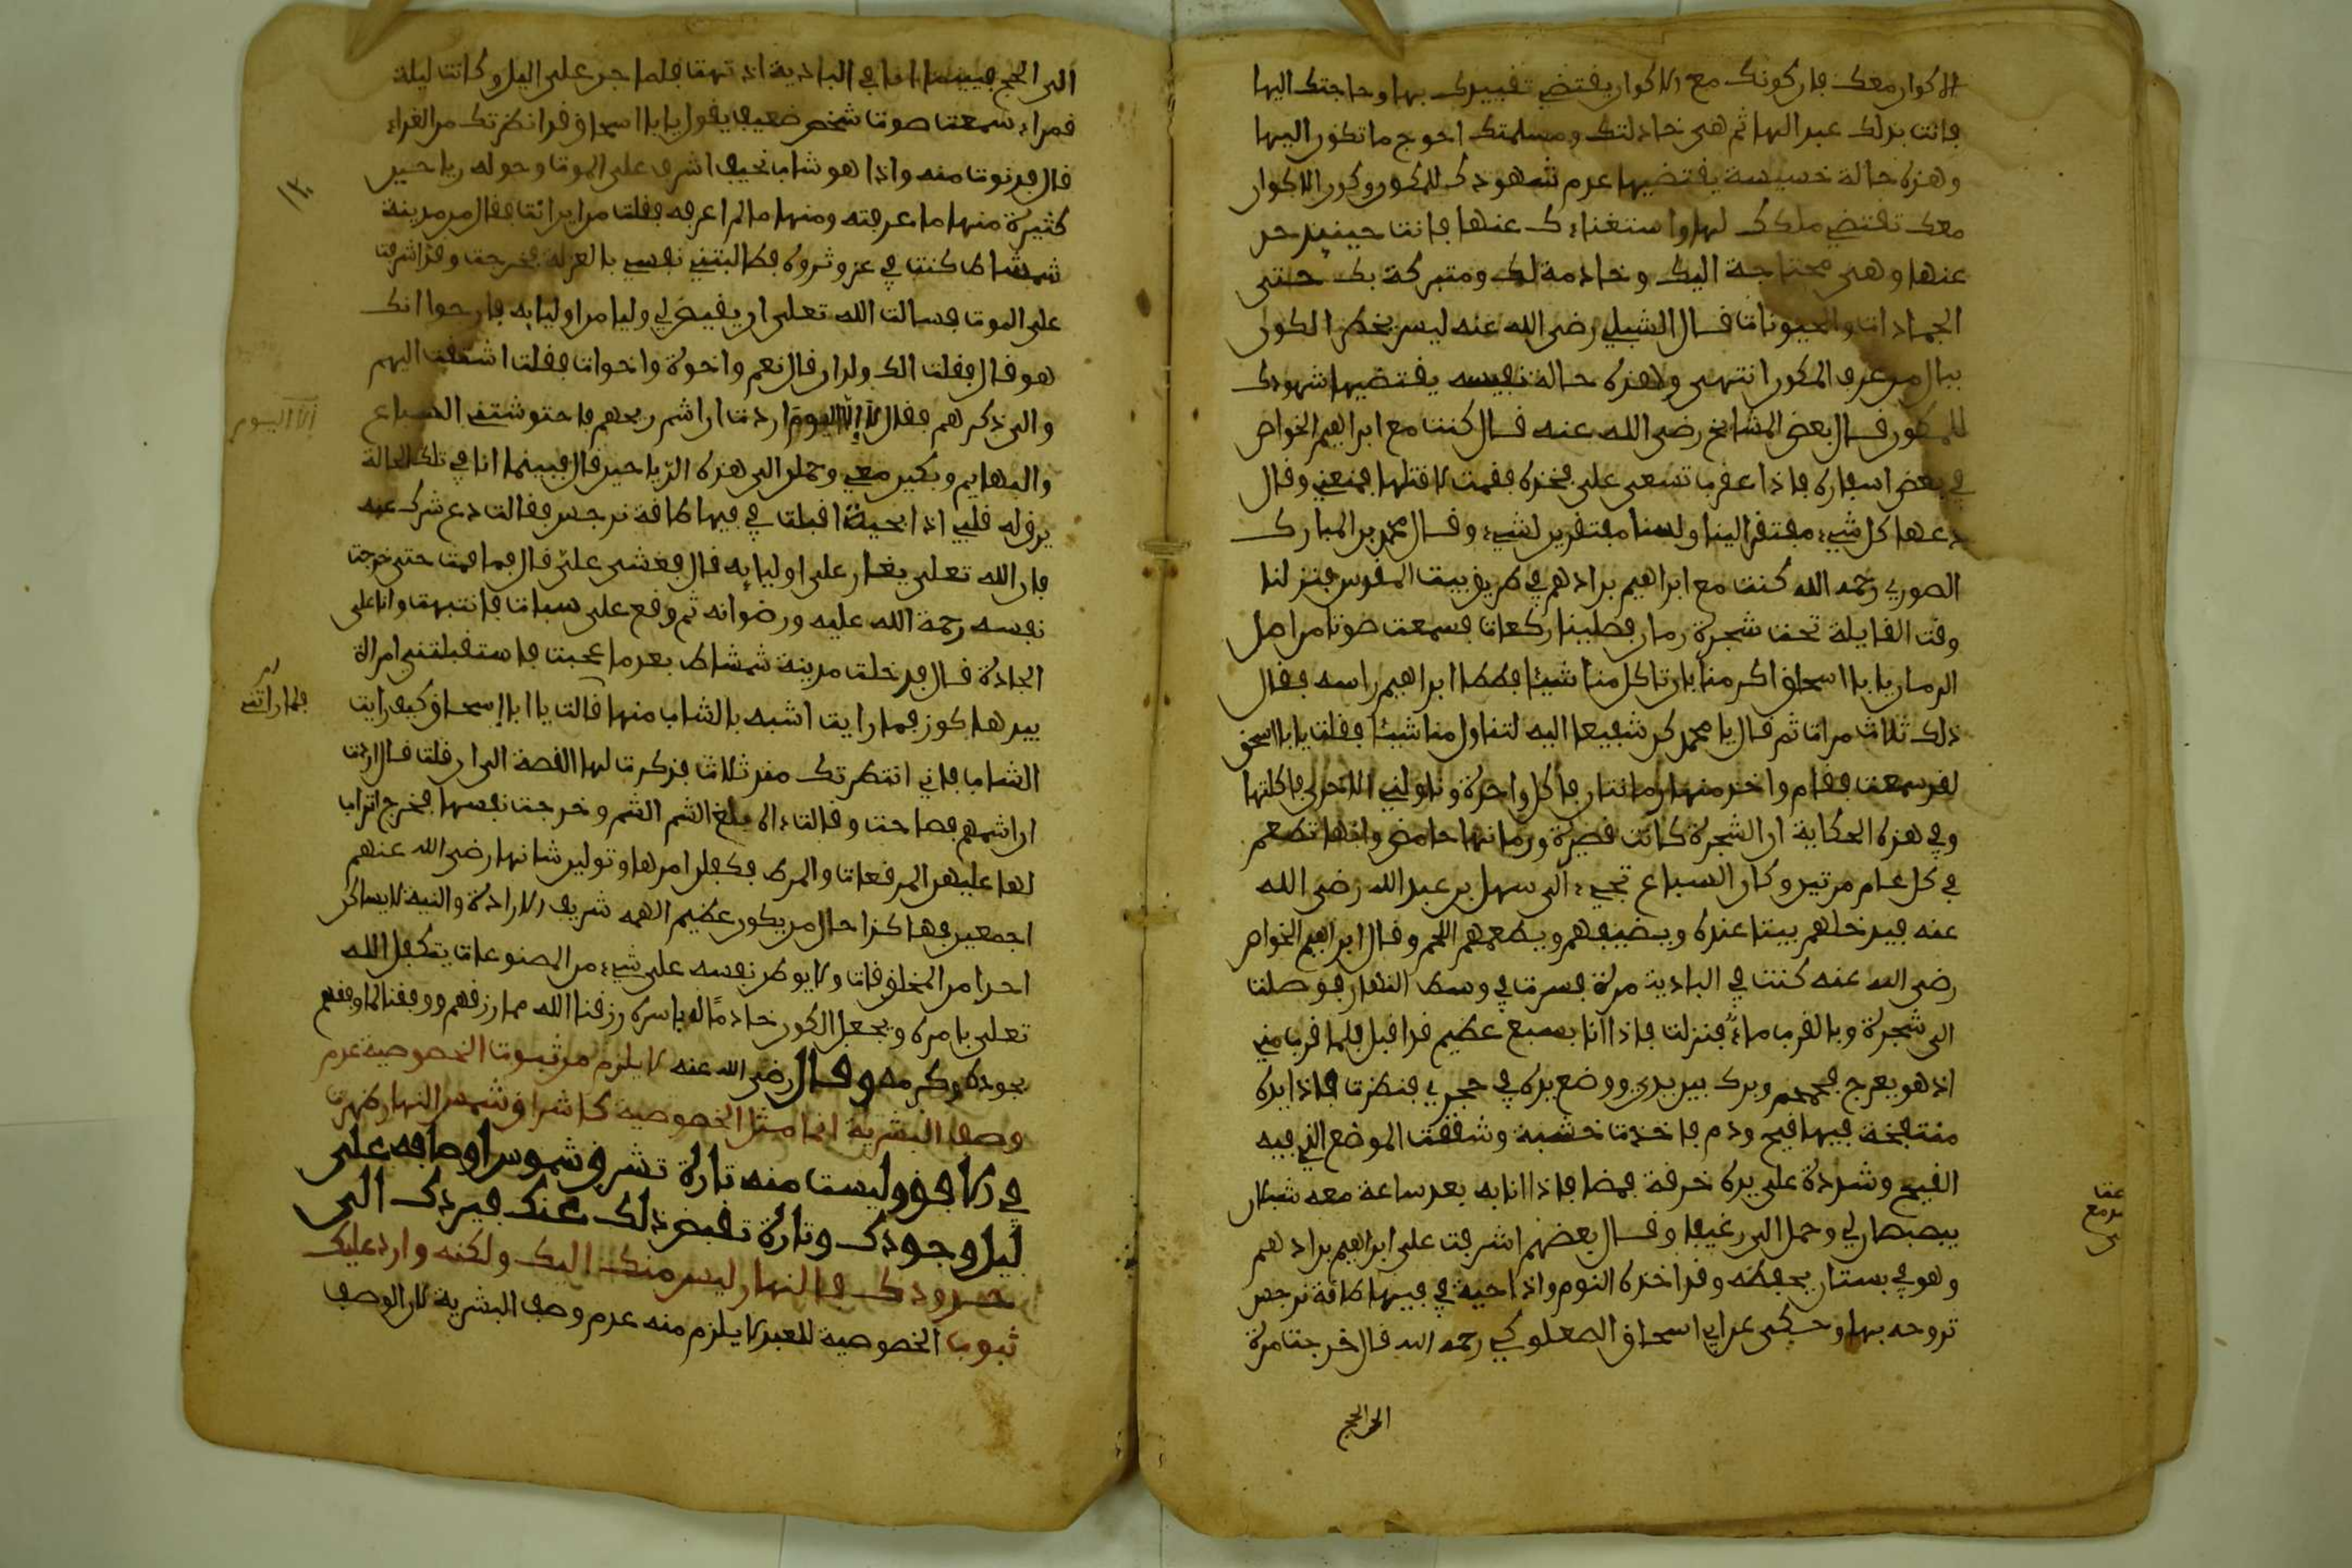 الاكوان معك فان كونك مع الاكوان يفتضي تفييدك بها وحاجتك اليها
فانت بذلك عبد لها ثم هي خاذلتك ومسلمتك احوج ما تكون اليها
وهذه حالة خسيسة يفتضيها عدم شهودك للمكون وكون الاكوان
معك تفتضي ملكك لها واستغناءك عنها فانت حينئذ حر
عنها وهي محتاجة اليك وخادمة لك ومتبركة بك حتى
الجمادات والحيونات فال الشبلي رضى الله عنه ليس يخطر الكون
ببال من عرف المكون انتهى وهذه حالة نفيسه يفتضيها شهودك
للمكون فال بعض المشايخ رضى الله عنه فال كنت مع ابراهيم الخواص
في بعض اسفاره فاذا عفرب تسعى على فخذه ففمت لافتلها فمنعني وفال
دعها كل شيء مفتفر الينا ولسنا مفتفرين لشيء وفال محمد بن المبارك
الصوري رحمه الله كنت مع ابراهيم بن ادهم في طريف بيت المفدس فنزلنا
وفت الفايلة تحت شجرة رمان فصلينا ركعات فسمعت صوتا من اصل
الرمان يا با اسحاف اكرمنا بان تاكل منا شيئا فطاطا ابراهيم راسه ففال
ذلك ثلاث مرات ثم فال يا محمد كن شفيعا اليه لتناول منا شيئا ففلت يا با اسحف
لفد سمعت ففام واخذ منها رمانتان فاكل واحدة وناولني الاخرى فاكلتها
وفي هذه الحكاية ان الشجرة كانت فصيرة ورمانها حامض وانها تطعم
في كل عام مرتين وكان السباع تجيء الى سهل بن عبد الله رضى الله
عنه فيدخلهم بيتا عنده ويضيفهم ويطعمهم اللحم وفال ابراهيم الخواص
رضى الله عنه كنت في البادية مرة فسرت في وسط النهار فوصلت
الى شجرة وبالفرب ماء فنزلت فاذا انا بسبع عظيم فد افبل فلما فرب مني
اذ هو يعرج فحمحم وبرك بين يدي ووضع يده في حجري فنظرت فاذا يده
منتفخة فيها فيح ودم فاخذت خشبة وشففت الموضع الذي فيه
الفيح وشددت على يده خرفة فمضا فاذا انا به بعد ساعة معه شبلان
يبصبصان لي وحمل الي رغيفا وفال بعضهم اشرفت على ابراهيم بن ادهم
وهو في بستان يحفظه وفد اخذه النوم واذا حية في فيها طافة نرجس
تروحه بها وحكي عن ابي اسحاف الصعلوكي رحمه الله فال خرجت مرة
الى الحج
الى الحج فبينما انا في البادية اذ تهت فلما جن على اليل وكانت ليلة
فمراء سمعت صوت شخص ضعيف يفول يا با اسحاف فد انظرتك من الغداء
فال فدنوت منه واذا هو شاب نحيف اشرف على الموت وحوله رياحين
كثيرة منها ما عرفته ومنها ما لم اعرفه ففلت من اين انت ففال من مدينة
شمشاط كنت في عز وثروة فطالبتني نفسي بالعزلة فخرجت وفد اشرفت
على الموت فسالت الله تعلى ان يفيض لي وليا من اوليايه فارجوا انك
هو فال ففلت الك ولدان فال نعم واخوة واخوات ففلت اشتفت اليهم
والى ذكرهم ففال لا الا اليوم اردت ان اشم ريحهم فاحتوشتني السباع
والبهايم وبكين معي وحملن الى هذه الرياحين فال فبينما انا في تلك الحالة
يرف له فلبي اذا بحية افبلت في فيها طافة نرجس ففالت دع شرك عنه
فان الله تعلى يغار على اوليايه فال فغشي علي فال فما فمت حتى خرجت
نفسه رحمة الله عليه ورضوانه ثم وفع علي سبات فانتبهت وانا على
الجادة فال فدخلت مدينة شمشاط بعد ما حججت فاستفبلتني امراة
بيدها كوز فما رايت اشبه بالشاب منها فالت يا ابا اسحاف كيف رايت
الشاب فاني انتظرتك منذ ثلاث فذكرت لها الفصة الى ان فلت فال اردت
ان اشم ريحهم فصاحت وفالت اه بلغ الشم الشم وخرجت نفسها فخرج اتراب
لها عليهن المرفعات والمرط فكفلن امرها وتولين شانها رضى الله عنهم
اجمعين فهاكذا حال من يكون عظيم الهمه شريف الارادة والنية لا يساكن
احدا من المخلوفات ولا يوطن نفسه على شيء من المصنوعات يتكفل الله
تعلى بامره ويجعل الكون خادما له باسره رزفنا الله مما رزفهم ووففنا لما وففهم
بجوده وكرمه وفال رضى الله عنه لا يلزم من ثبوت الخصوصية عدم
وصف البشرية انما مثل الخصوصية كاشراف شمس النهار ظهرت
في الافف وليست منه تارة تشرف شموس اوصافه على
ليل وجودك وتارة تفبض ذلك عنك فيردك الى
حدودك فالنهار ليس منك اليك ولكنه وارد عليك
ثبوت الخصوصية للعبد لا يلزم منه عدم وصف البشرية لان الوصف
الا اليوم
فلما راتني